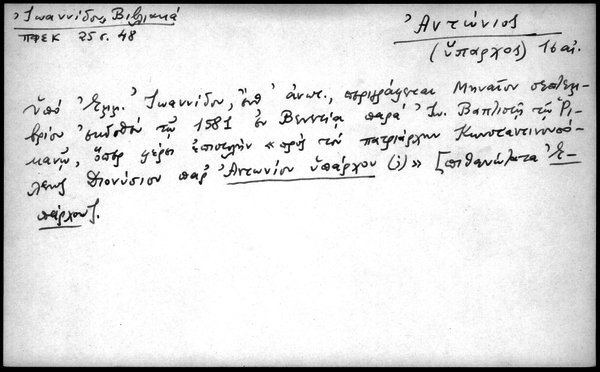 Ἰωαννίδου, Βιβλιακά
ΠΦΕΚ 25 σ. 48
Ἀντώνιος
(ὕπαρχος) 16 αἰ.
Ὑπό Ἐμμ. Ἰωαννίδου, ἔνθ' ἀνωτ., περιγράφεται Μηναῖον Σεπτεμ-
βρίου ἐκδοθέν τῷ 1581 ἐν Βενετίᾳ παρά Ἰω. Βαπτιστῇ τῷ Ρι-
κανῷ, ὅπερ φέρει ἐπιστολήν «πρός τόν πατριάρχην Κωνσταντινουπό-
λεως Διονύσιον παρ' Ἀντωνίου ὑπάρχου (;)» [πιθανώτατα Ἐ-
πάρχου].